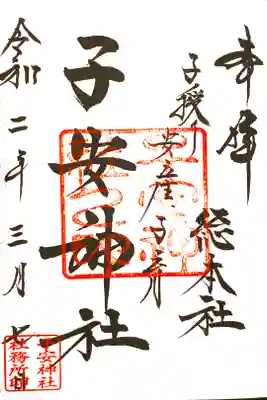 奉拝
総本社
子授け 安産 子育
子安神社
令和二年三月七日
子安神社
社務所印